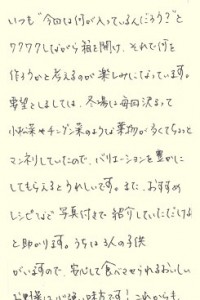 いつも“今回は何が入っているんだろう？”と
ワクワクしながら箱を開け、それで何を
作ろうかと考えるのが楽しみになっています。
要望としましては、冬場は毎回決まって
小松菜やチンゲン菜のような葉物が多くてちょっと
マンネリしていたので、バリエーションを豊かに
してもらえるとうれしいです。また、おすすめ
レシピなど写真付きで紹介していただけると
と助かります。うちは3人の子供
がいますので、安心して食べさせられるおいしい
お野菜は心強い味方です！これからも